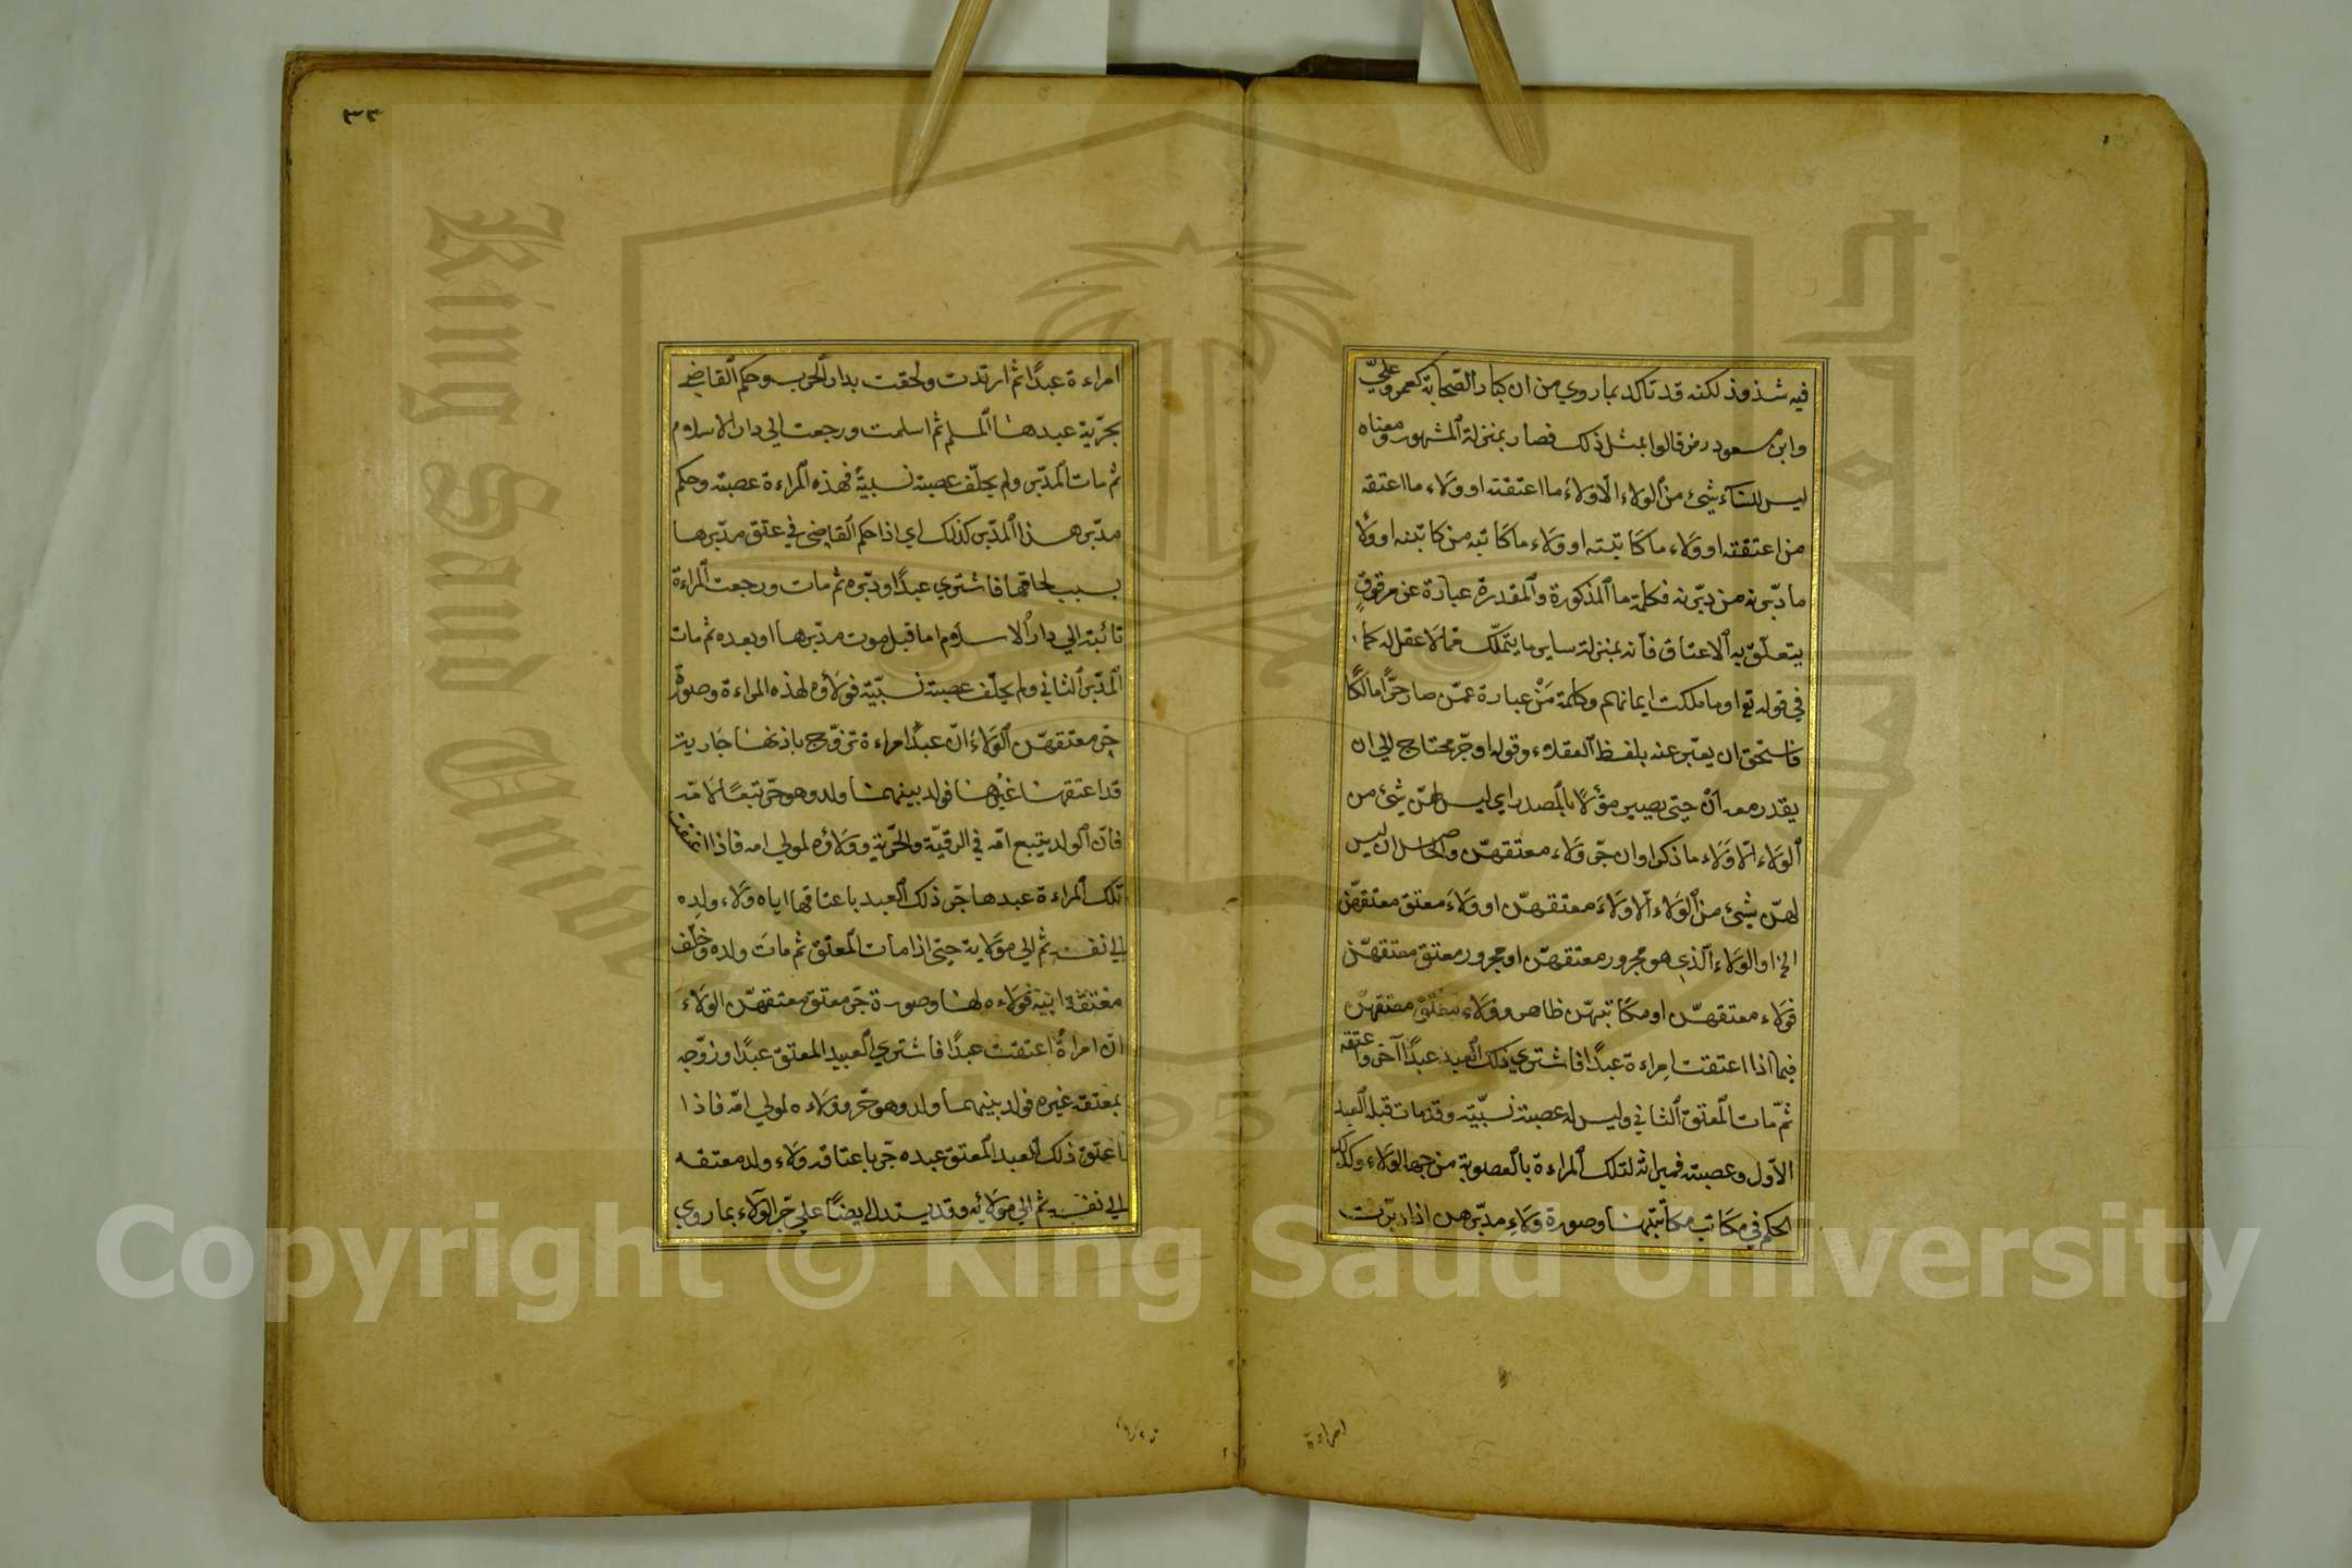 فيه شذوذ لكنه قد تاكد بما روي من ان كبار الصحابة كعمر وعليّ
وابن مسعود رض قالوا بمثل ذلك فصار بمنزلة المشهور ومعناه
ليس للنساء شيئ من الولاء الّا ولاء ما اعتقنه او ولاء ما اعتقه
من اعتقنه او ولاء ما كاتبنه او ولاء ما كاتبه من كاتبنه او ولاء
ما دبّرنه من دبّرنه فكلمة ما المذكورة والمقدرة عبارة عن مرقوق
يتعلّق به الاعتاق فانه بمنزلة ساير ما يتملّك مما لا عقل له كما
في قوله تع او ما ملكت ايمانهم وكلمة مَنْ عبارة عمّن صار حرًّا مالكًا
فاستحق ان يعبّر عنه بلفظ العقلاء وقوله او جرّ محتاج الي ان
يقدر معه اَنْ حتي يصير مؤلًا بالمصدر اي ليس لهنّ شيئ من
الولاء الّا ولاء ما ذكر او ان جرّ ولاء معتقهنّ والحاصل ان ليس
لهنّ شيئ من الولاء الّا ولاء معتقهنّ او ولاء معتق معتقهنّ
الخ او الولاء الّذي هو مجرور معتقهنّ او مجرور معتق معتقهنّ
فولاء معتقهنّ او مكاتبهنّ ظاهر وولاء معتق معتقهنّ
فيما اذا اعتقت امراءة عبدًا فاشتري ذلك العبد عبدًا آخر واعتقه
ثمّ مات المعتق الثاني وليس له عصبة نسبيّة وقد مات قبله العبد
الاوّل وعصبته فميراثه لتلك المراءة بالعصوبة من جهة الولاء وكذلك
الحكم في مكاتب مكاتبتها وصورة ولاء مدبّرهن اذا دبّرت
امراءة
٣٣
امراءة عبدًا ثم ارتدت ولحقت بدار الحرب وحكم القاضي
بحرّية عبدها المسلم ثم اسلمت ورجعت الي دار الاسلام
ثم مات المدبّر ولم يخلّف عصبة نسبيّة فهذه المراءة عصبته وحكم
مدبّر هذا المدبّر كذلك اي اذا حكم القاضي في عتق مدبّرها
بسبب لحاقها فاشتري عبدًا ودبّره ثم مات ورجعت المراءة
تائبة الي دار الاسلام اما قبل موت مدبّرها او بعده ثم مات
المدبّر الثاني ولم يخلّف عصبة نسبيّة فولاؤه لهذه المراءة وصورة
جرّ معتقهنّ الولاء انّ عبدًا امراءة تزوّج باذنها جارية
قد اعتقها غيرها فولد بينهما ولد وهو حرّ تبعًا لامّه
فانّ الولد يتبع امّه في الرقيّة والحرّية وولاؤه لمولي امه فاذا اعتقت
تلك المراءة عبدها جرّ ذلك العبد باعتاقها اياه ولاء ولده
الي نفسه ثم الي مولاته حتي اذا مات المعتق ثم مات ولده وخلّف
معتقة ابيه فولاءه لها وصورة جرّ معتق معتقهنّ الولاء
انّ امراةً اعتقت عبدًا فاشتري العبيد المعتق عبدًا وزوّجه
بمعتقة غيره فولد بينهما ولد وهو حرّ وولاءه لمولي امّه فاذا
اعتق ذلك العبد المعتق عبده جرّ باعتاقه ولاء ولد معتقه
الي نفسه ثم الي مولاته وقد يستدل ايضًا علي جرّ الولاء بما روي